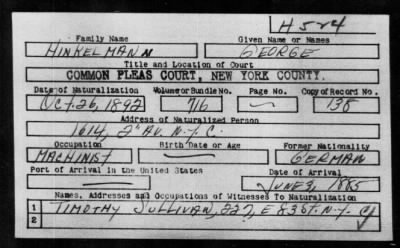 H524
Family Name Given Name or Names
HINKELMANN GEORGE
Title and Location of Court
COMMON PLEAS COURT, NEW YORK COUNTY.
Date of Naturalization Volume or Bundle No. Page No. Copy of Record No.
Oct. 26, 1892 716 138
Address of Naturalized Person
1614, 2" AV. N.Y.C.
Occupation Birth Date or Age Former Nationality
MACHINIST GERMAN
Port of Arrival in the United States Date of Arrival
JUNE 3, 1885
Names, Addresses and Occupations of Witnesses To Naturalization
1 TIMOTHY SULLIVAN, 227, E 83 ST. N.Y. C
2